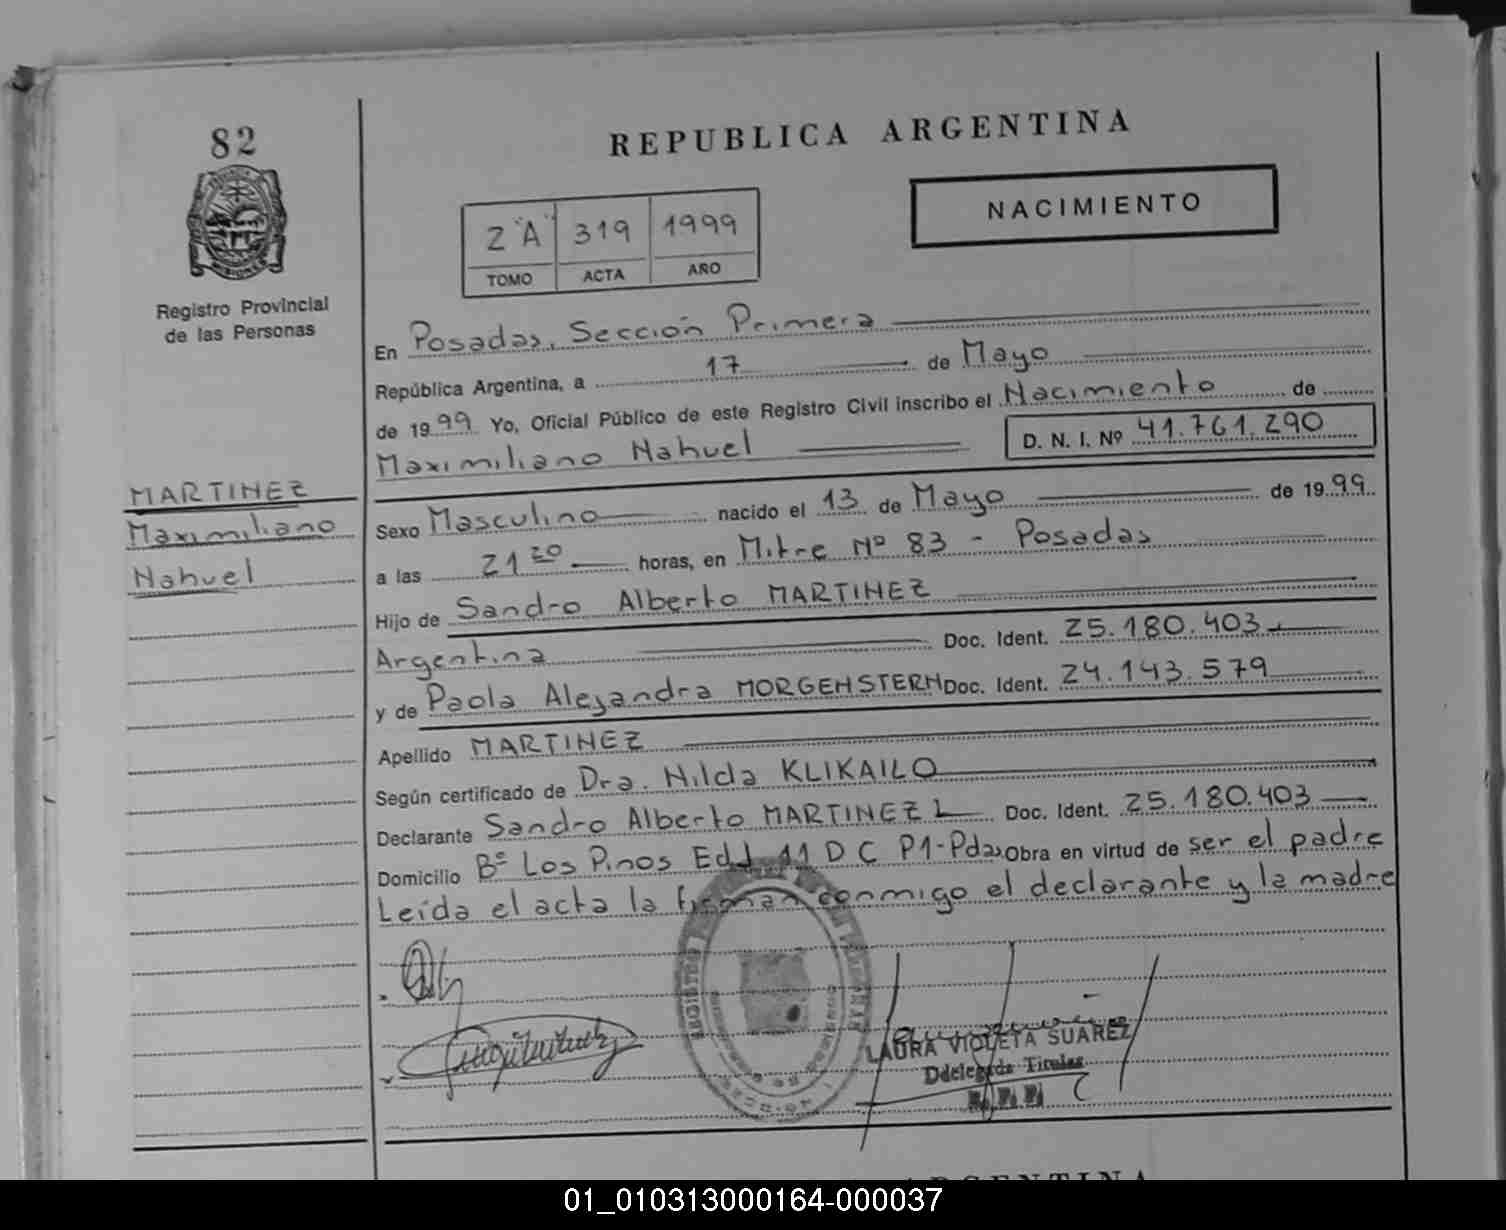 82
Registro Provincial
de las Personas
MARTINEZ
Maximiliano
Nahuel
REPUBLICA ARGENTINA
2 "A" 319 1999
TOMO ACTA AÑO
NACIMIENTO
En Posadas, Sección Primera
República Argentina, a 17 de Mayo
de 1999 Yo, Oficial Público de este Registro Civil inscribo el Nacimiento de
Maximiliano Nahuel D. N. I. Nº 41.761.290
Sexo Masculino nacido el 13 de Mayo de 1999
a las 21 20 horas, en Mitre Nº 83 - Posadas
Hijo de Sandro Alberto MARTINEZ
Argentina Doc. Ident. 25.180.403
y de Paola Alejandra MORGENSTERN Doc. Ident. 24.143.579
Apellido MARTINEZ
Según certificado de Dra. Nilda KLIKAILO
Declarante Sandro Alberto MARTINEZ Doc. Ident. 25.180.403
Domicilio Bº Los Pinos Edd 11 D C P1-Pdas Obra en virtud de ser el padre
Leída el acta la firman conmigo el declarante y la madre
LAURA VIOLETA SUAREZ
Ddelegada Titular
R. P. P.
ARGENTINA
01_010313000164-000037